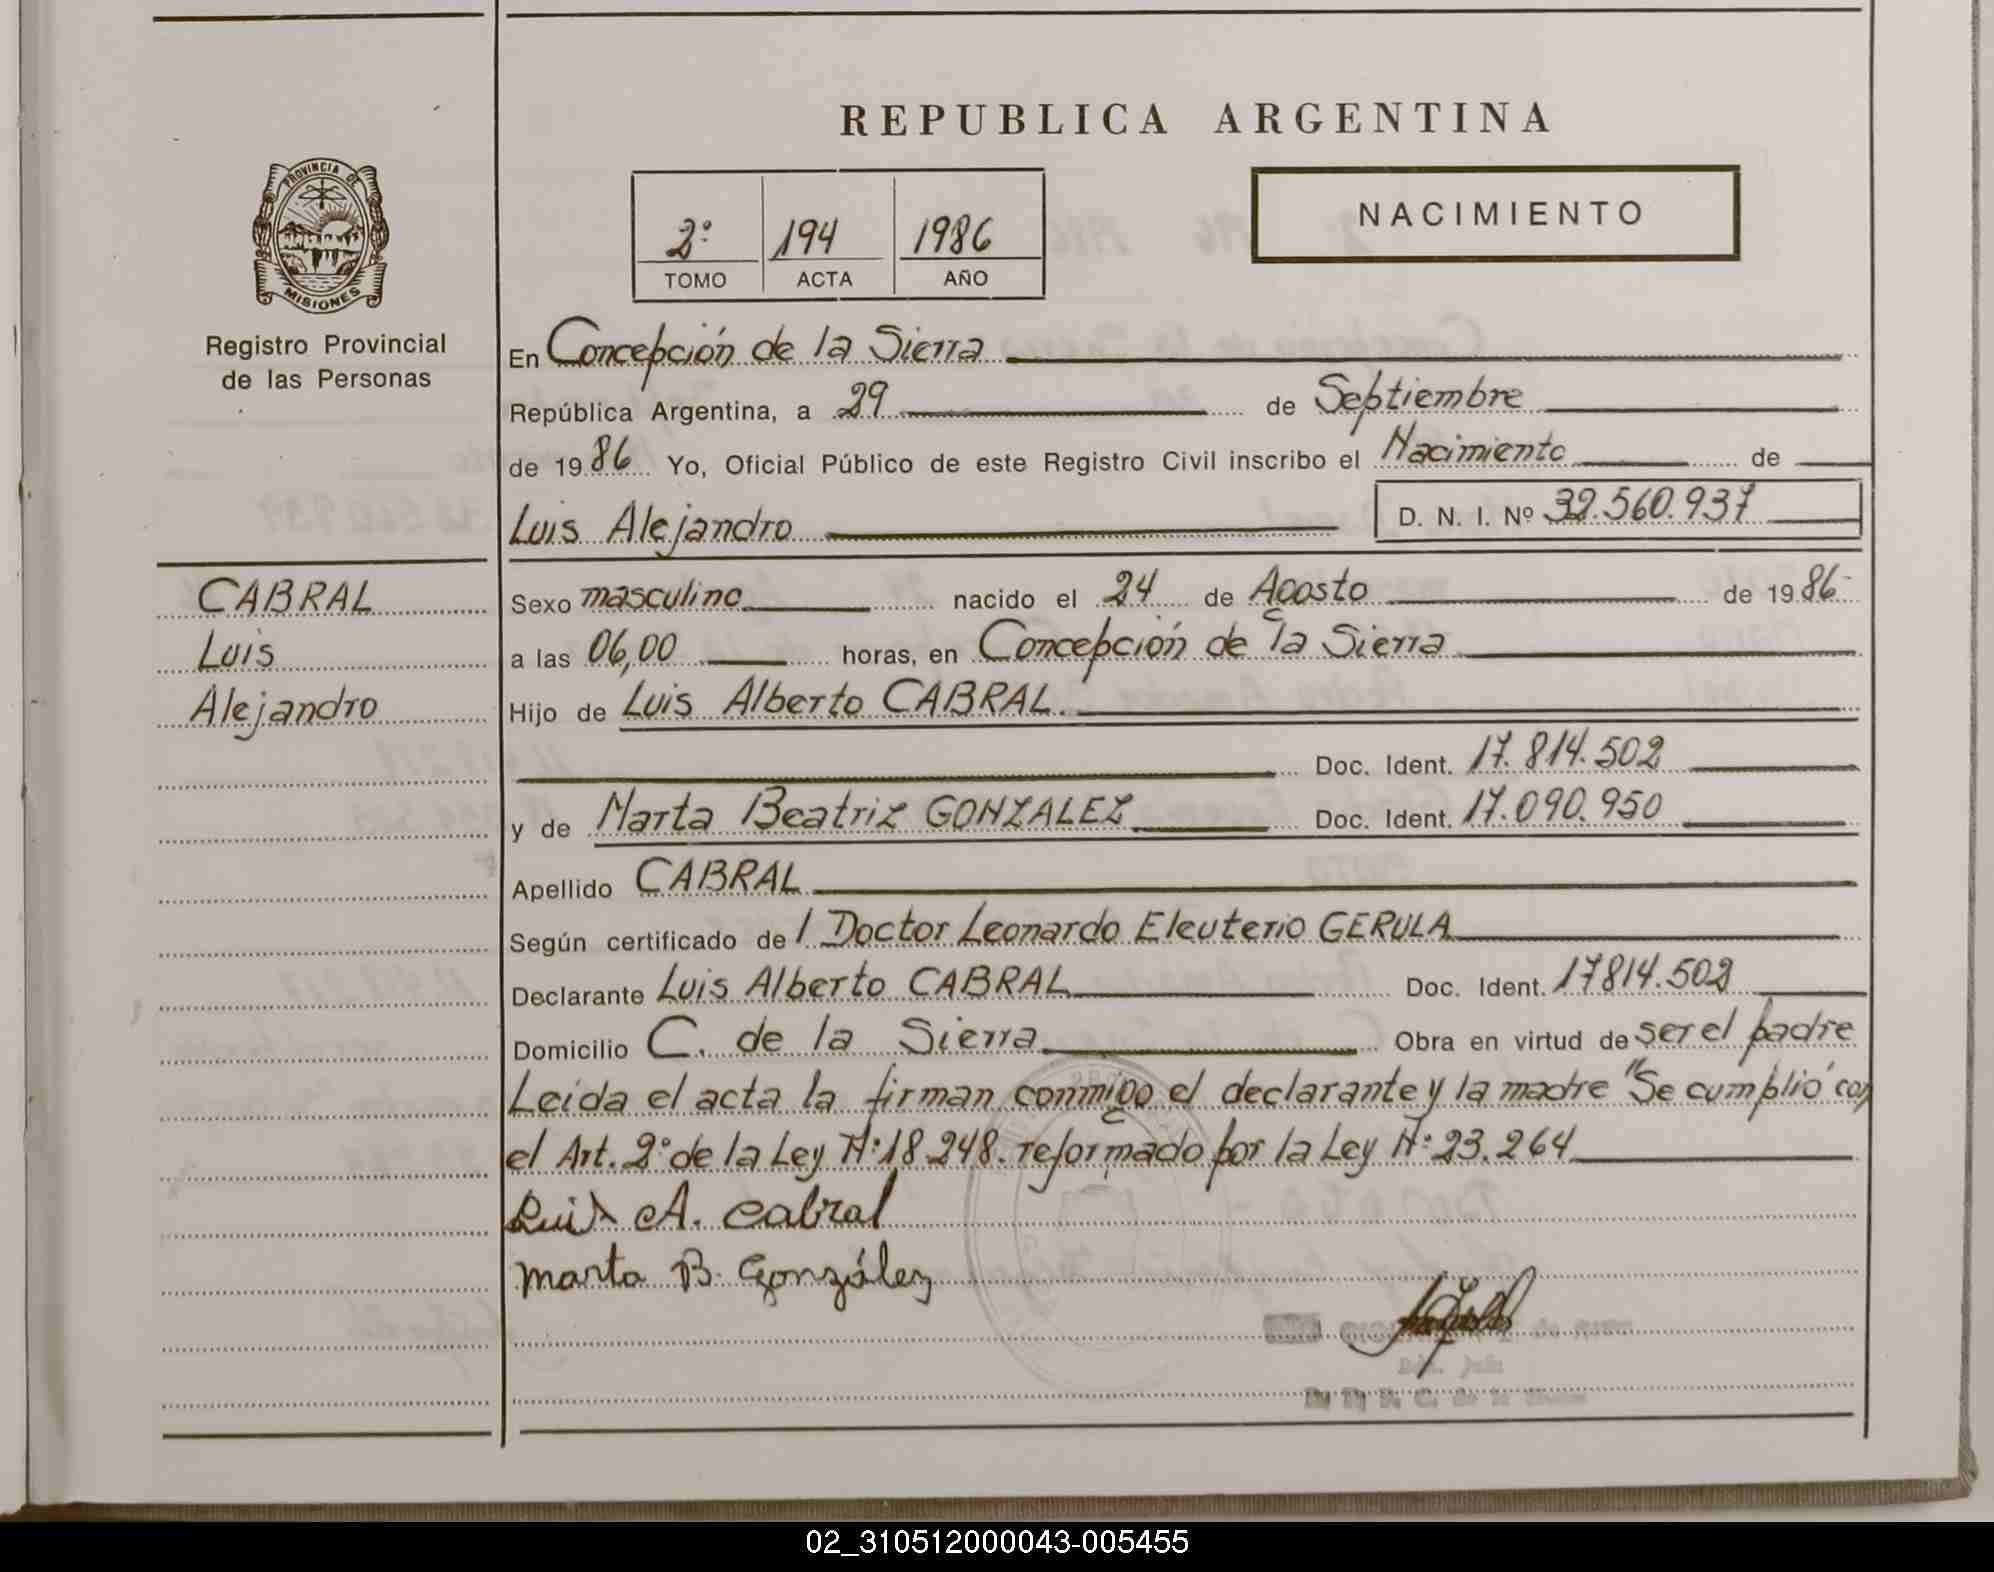 REPUBLICA ARGENTINA
PROVINCIA DE
MISIONES
Registro Provincial
de las Personas
2º 194 1986
TOMO ACTA AÑO
NACIMIENTO
En Concepción de la Sierra
República Argentina, a 29 de Septiembre
de 1986 Yo, Oficial Público de este Registro Civil inscribo el Nacimiento de
Luis Alejandro D. N. I. Nº 32.560.937
CABRAL
Luis
Alejandro
Sexo masculino nacido el 24 de Agosto de 1986
a las 06,00 horas, en Concepción de la Sierra
Hijo de Luis Alberto CABRAL
Doc. Ident. 17.814.502
y de Marta Beatriz GONZALEZ Doc. Ident. 17.090.950
Apellido CABRAL
Según certificado del Doctor Leonardo Eleuterio GERULA
Declarante Luis Alberto CABRAL Doc. Ident. 17814.502
Domicilio C. de la Sierra Obra en virtud de ser el padre
Leida el acta la firman conmigo el declarante y la madre "Se cumplió" con
el Art. 2º de la Ley Nº 18.248. reformado por la Ley Nº 23.264
Luis A. Cabral
Marta B. González
02_310512000043-005455